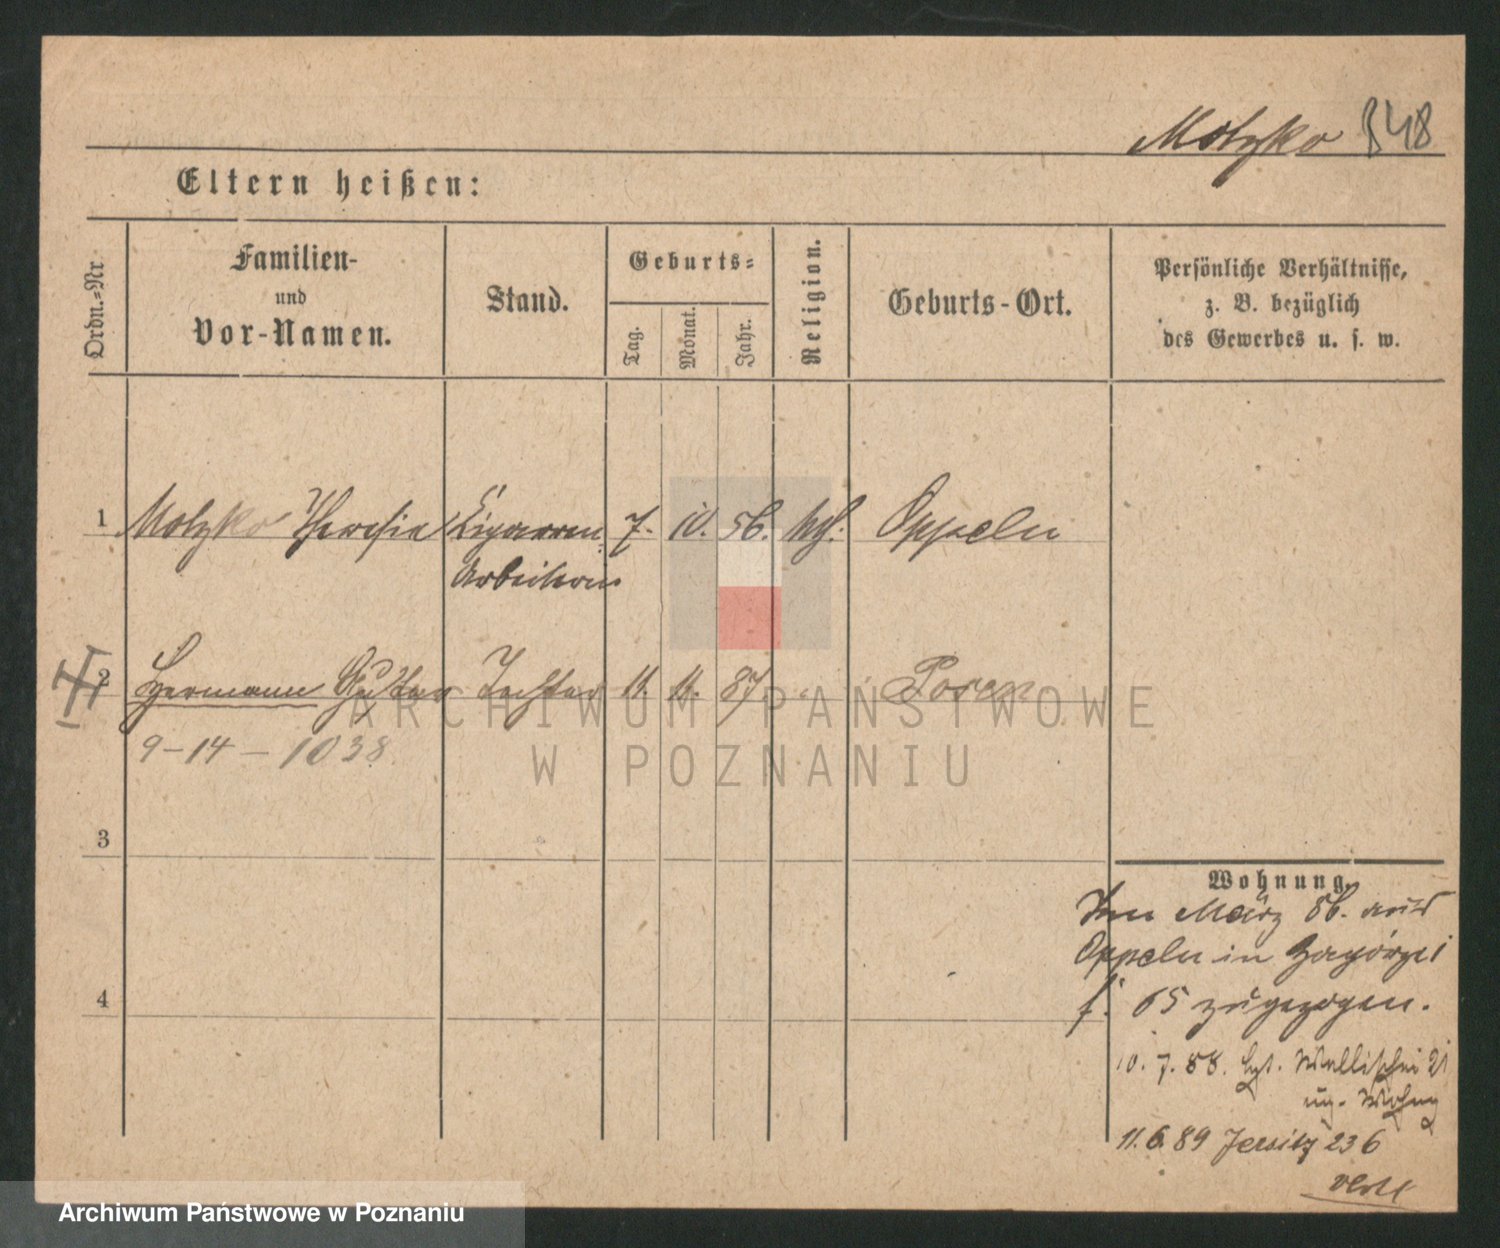 Motzko 348
Eltern heißen:
Ordn.=Nr.
Familien-
und
Vor-Namen.
Stand.
Geburts=
Tag.
Monat.
Jahr.
Religion.
Geburts-Ort.
Persönliche Verhältnisse,
z. B. bezüglich
des Gewerbes u. s. w.
1 Motzko Theresia Cigarren 7. 10. 56. kth. Oppeln
Arbeiterin
2 Hermann Tochter 11. 11. 87 " Posen
9-14-1038
3
4
Wohnung.
Im März 86. aus
Oppeln in Zagórze
f. 65 zugezogen.
10. 7. 88. Wallischei 21
11. 6. 89 Jersitz 236
ARCHIWUM PAŃSTWOWE
W POZNANIU
Archiwum Państwowe w Poznaniu